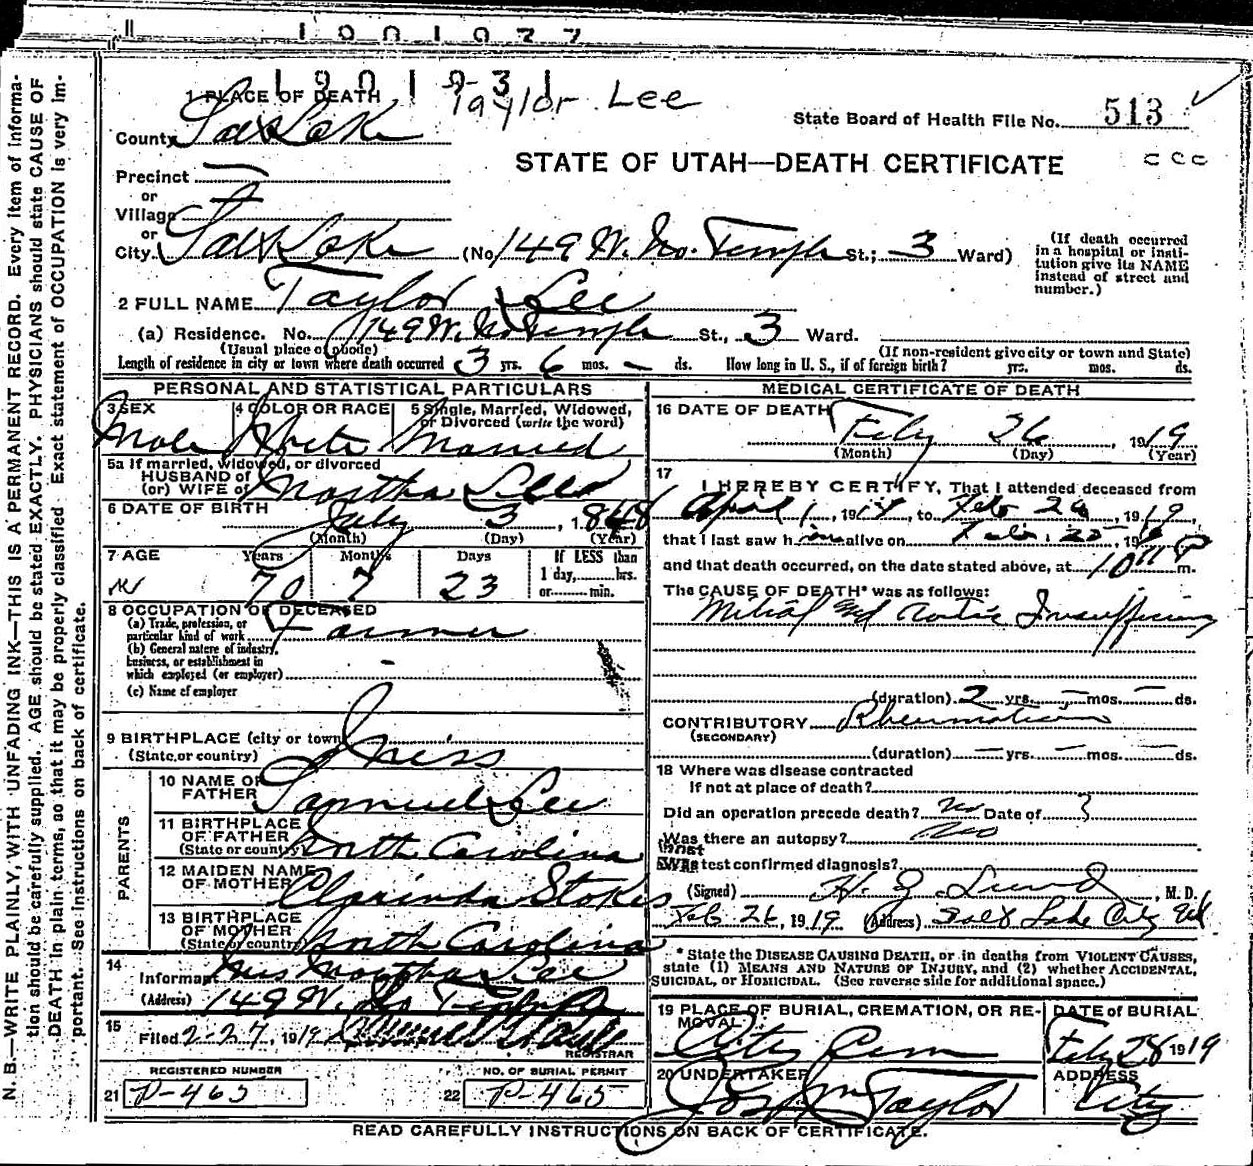 1901931
Taylor Lee
1 PLACE OF DEATH
County Salt Lake
State Board of Health File No. 513
STATE OF UTAH—DEATH CERTIFICATE
Precinct
or
Village
or
City Salt Lake (No. 149 W. No. Temple St.; 3 Ward)
(If death occurred in a hospital or institution give its NAME instead of street and number.)
2 FULL NAME Taylor Lee
(a) Residence. No. 149 W. No Temple St., 3 Ward.
(Usual place of abode) (If non-resident give city or town and State)
Length of residence in city or town where death occurred 3 yrs. 6 mos. — ds. How long in U. S., if of foreign birth? yrs. mos. ds.
PERSONAL AND STATISTICAL PARTICULARS
3 SEX 4 COLOR OR RACE 5 Single, Married, Widowed, or Divorced (write the word)
Male White Married
5a If married, widowed, or divorced
HUSBAND of
(or) WIFE of Martha Lee
6 DATE OF BIRTH July 3, 1848
(Month) (Day) (Year)
7 AGE Years Months Days If LESS than
70 7 23 1 day,........hrs.
or........min.
8 OCCUPATION OF DECEASED
(a) Trade, profession, or
particular kind of work Farmer
(b) General nature of industry,
business, or establishment in
which employed (or employer)
(c) Name of employer
9 BIRTHPLACE (city or town)
(State or country) Miss
PARENTS
10 NAME OF
FATHER Samuel Lee
11 BIRTHPLACE
OF FATHER
(State or country) North Carolina
12 MAIDEN NAME
OF MOTHER Clarinda Stokes
13 BIRTHPLACE
OF MOTHER
(State or country) North Carolina
14
Informant Mrs Martha Lee
(Address) 149 W. No Temple
15
Filed 2-27, 1919
REGISTRAR
REGISTERED NUMBER NO. OF BURIAL PERMIT
21 P-465 22 P-465
MEDICAL CERTIFICATE OF DEATH
16 DATE OF DEATH
Feby 26, 1919
(Month) (Day) (Year)
17
I HEREBY CERTIFY, That I attended deceased from
April 1, 191, to Feb 26, 1919,
that I last saw him alive on Feb. 25, 19
and that death occurred, on the date stated above, at 10 P m.
The CAUSE OF DEATH* was as follows:
Mitral and Aortic Insufficiency
(duration) 2 yrs. — mos. — ds.
CONTRIBUTORY Rheumatism
(SECONDARY)
(duration) — yrs. — mos. — ds.
18 Where was disease contracted
If not at place of death?
Did an operation precede death? No Date of
Was there an autopsy? No
What test confirmed diagnosis?
(Signed) H. J. Lund, M. D.
Feb 26, 1919 (Address) Salt Lake City Ut
* State the DISEASE CAUSING DEATH, or in deaths from VIOLENT CAUSES,
state (1) MEANS AND NATURE OF INJURY, and (2) whether ACCIDENTAL,
SUICIDAL, or HOMICIDAL. (See reverse side for additional space.)
19 PLACE OF BURIAL, CREMATION, OR REMOVAL DATE of BURIAL
City Cem Feby 28 1919
20 UNDERTAKER ADDRESS
Jos Wm Taylor City
READ CAREFULLY INSTRUCTIONS ON BACK OF CERTIFICATE.
N. B.—WRITE PLAINLY, WITH UNFADING INK—THIS IS A PERMANENT RECORD. Every item of information should be carefully supplied. AGE should be stated EXACTLY. PHYSICIANS should state CAUSE OF DEATH in plain terms, so that it may be properly classified. Exact statement of OCCUPATION is very important. See instructions on back of certificate.